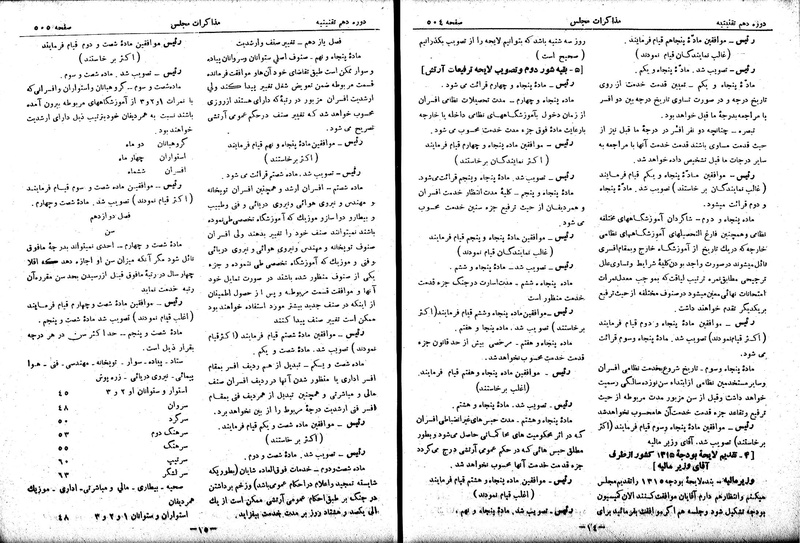 دوره دهم تقنینیه
مذاکرات مجلس
صفحه ۵۰۴
رئیس ـ موافقین مادهٔ پنجاهم قیام فرمایند
(غالب نمایندگان قیام نمودند)
رئیس ـ تصویب شد. مادهٔ پنجاه و یکم.
مادهٔ پنجاه و یکم ـ تعیین قدمت خدمت از روی
تاریخ درجه و در صورت تساوی تاریخ درجه بین دو افسر
با مراجعه بدرجهٔ ما قبل خواهد بود.
تبصره ـ چنانچه دو نفر افسر در درجهٔ ما قبل نیز از
حیث قدمت مساوی باشند قدمت خدمت آنها با مراجعه به
سایر درجات ما قبل تشخیص داده خواهد شد.
رئیس ـ موافقین مادهٔ پنجاه و یکم قیام فرمایند
(غالب نمایندگان بر خاستند) تصویب شد. مادهٔ پنجاه
و دوم قرائت میشود.
ماده پنجاه و دوم ـ شاگردان آموزشگاههای مختلفه
نظامی و همچنین فارغ التحصیلهای آموزشگاههای نظامی
خارجه که در یک تاریخ از آموزشگاه خارج و بمقام افسری
نائل میشوند در صورت واجد بودن کلیهٔ شرایط و تساوی علل
ترجیحی مطابق نمره ترتیب لیاقت که بموجب معدل نمرات
امتحانات نهائی معین میشود در صنوف مختلفه از حیث ترفیع
بر یکدیگر تقدم خواهند داشت.
رئیس ـ موافقین مادهٔ پنجاه و دوم قیام فرمایند
(اکثر قیام نمودند) تصویب شد. مادهٔ پنجاه و سوم قرائت
می شود.
مادهٔ پنجاه و سوم ـ تاریخ شروع بخدمت نظامی افسران
وسایر مستخدمین نظامی از ابتداء سن نوزده سالگی رسمیت
خواهد داشت وقبل از سن مزبور مدت مربوطه از حیث
ترفیع و تقاعد جزء قدمت خدمت آن‌ها محسوب نخواهد شد
رئیس ـ موافقین مادهٔ پنجاه و سوم قیام فرمایند (اکثر
برخاستند) تصویب شد. آقای وزیر مالیه
[۴ ـ تقدیم لایحهٔ بودجهٔ ۱۳۱۵ کشور از طرف
آقای وزیر مالیه]
وزیر مالیه ـ بنده لایحه بودجهٔ ۱۳۱۵ را تقدیم مجلس
میکنم و انتظار هم دارم آقایان موافقت کنند الان کمیسیون
بودجه تشکیل شود و جلسه هم اگر موافقت بفرمائید برای
روز سه شنبه باشد که بتوانیم لایحه را از تصویب بگذرانیم
(صحیح است)
[۵ ـ بقیه شور دوم و تصویب لایحه ترفیعات آرتش]
رئیس ـ مادهٔ پنجاه و چهارم قرائت می شود.
مادهٔ پنجاه و چهارم ـ مدت تحصیلات نظامی افسران
از زمان دخول بآموزشگاههای نظامی داخله یا خارجه
بارعایت مادهٔ فوق جزء مدت خدمت محسوب می شود.
رئیس ـ موافقین مادهٔ پنجاه و چهارم قیام فرمایند
(اکثر نمایندگان بر خاستند)
رئیس ـ تصویب شد. مادهٔ پنجاه و پنجم قرائت می‌شود.
مادهٔ پنجاه و پنجم ـ کلیهٔ مدت انتظار خدمت افسران
و همردیفان از حیث ترفیع جزء سنین خدمت محسوب
می شود
رئیس ـ موافقین مادهٔ پنجاه و پنجم قیام فرمایند
(غالب نمایندگان قیام نمودند)
رئیس ـ تصویب شد. مادهٔ پنجاه و ششم
مادهٔ پنجاه و ششم ـ مدت اسارت در جنگ جزء قدمت
خدمت منظور است
رئیس ـ موافقین ماده پنجاه وششم قیام فرمایند(اکثر
برخاستند) تصویب شد. ماده پنجاه و هفتم
ماده پنجاه و هفتم ـ مرخصی بیش از حد قانون جزء
قدمت خدمت محسوب نخواهد شد.
رئیس ـ موافقین مادهٔ پنجاه وهفتم قیام فرمایند.
(اغلب برخاستند)
رئیس ـ تصویب شد. مادهٔ پنجاه و هشتم.
مادهٔ پنجاه و هشتم ـ مدت حبس های غیر انضباطی افسران
که در اثر محکومیت های محاکماتی حاصل می‌شود و بطور
مطلق حبس هائی که در حکم عمومی آرتشی درج می‌گردد
جزء قدمت خدمت آنها محسوب نخواهد شد.
رئیس ـ موافقین مادهٔ پنجاه و هشتم قیام فرمایند
(اغلب قیام نمودند)
رئیس ـ تصویب شد. مادهٔ پنجاه و نهم.
ـ۱٤ـ
دوره دهم تقنینیه
مذاکرات مجلس
صفحه ۵۰۵
فصل یازدهم ـ تغییر صنف وارشدیت
مادهٔ پنجاه و نهم ـ صنوف اصلی ستوانان و سروانان پیاده
و سوار ممکن است طبق تقاضای خود آنها و موافقت فرمانده
قسمت مربوطه ضمن تعویض شغل تغییر پیدا کند ولی
ارشدیت افسران مزبور در رتبهٔ که دارای هستند از روزی
محسوب خواهد شد که تغییر صنف در حکم عمومی آرتشی
تصریح می شود.
رئیس ـ موافقین مادهٔ پنجاه و نهم قیام فرمایند
(اکثر برخاستند)
رئیس ـ تصویب شد. مادهٔ شصتم قرائت می شود.
مادهٔ شصتم ـ افسران ارشد و همچنین افسران توپخانه
و مهندس و نیروی هوائی و نیروی دریائی و فنی وطبیب
و بیطار و دوا ساز و موزیک که آموزشگاه تخصصی طی نموده
باشند نمیتوانند صنف خود را تغییر بدهند ولی افسران
صنوف توپخانه و مهندس و نیروی هوائی و نیروی دریائی
و فنی و موزیک که آموزشگاه تخصصی طی ننموده و جزء
یکی از صنوف منظور شده باشند در صورت تمایل خود
آنها و موافقت قسمت مربوطه و پس از حصول اطمینان
از اینکه در صنف جدید بیشتر مورد استفاده خواهند بود
ممکن است تغییر صنف پیدا کنند
رئیس ـ موافقین مادهٔ شصتم قیام فرمایند (اکثر قیام
نمودند) تصویب شد. مادهٔ شصت و یکم.
مادهٔ شصت و یکم ـ تبدیل از هم ردیف افسر بمقام
افسر اداری یا منظور شدن آنها در ردیف افسران صنف
مالی و مباشرتی و همچنین تبدیل از همردیف فنی بمقام
افسر فنی ارشدیت درجهٔ مربوط را از بین نخواهد برد.
رئیس ـ موافقین ماده شصت و یکم قیام فرمایند.
(اکثر بر خاستند)
رئیس ـ تصویب شد. مادهٔ شصت و دوم.
ماده شصت ودوم ـ خدمات فوق العاده شایان (بطوریکه
شایسته تمجید واعلام در احکام عمومی باشد) وزخم برداشتن
در جنگ بر طبق احکام عمومی آرتشی ممکن است از یک
الی یکصد و هشتاد روز بر مدت خدمت بیفزاید.
رئیس موافقین مادهٔ شصت و دوم قیام فرمایند
(اکثر بر خاستند)
رئیس ـ تصویب شد. مادهٔ شصت و سوم.
مادهٔ شصت و سوم ـ گروهبانان واستواران وافسرانی که
با نمرات ۱و۲و۳ از آموزشگاههای مربوطه بیرون آمده
باشند نسبت به همردیفان خود بترتیب ذیل دارای ارشدیت
خواهند بود.
گروهبانان دو ماه
استواران چهار ماه
افسران ششماه
رئیس ـ موافقین ماده شصت و سوم قیام فرمایند
(اکثر قیام نمودند) تصویب شد. مادهٔ شصت و چهارم.
فصل دوازدهم
سن
مادهٔ شصت و چهارم ـ احدی نمیتواند بدرجهٔ مافوق
نائل شود مگر آنکه میزان سن او اجازه دهد که اقلا
چهار سال در رتبهٔ مافوق قبل از رسیدن بحد سن مقرره آن
رتبه خدمت نماید
رئیس ـ موافقین مادهٔ شصت و چهارم قیام فرمایند
(اغلب قیام نمودند) تصویب شد. مادهٔ شصت و پنجم.
مادهٔ شصت و پنجم ـ حداکثر سن در هر درجه
بقرار ذیل است.
ستاد ـ پیاده ـ سوار ـ توپخانه ـ مهندسی ـ فنی ـ هوا
پیمائی ـ نیروی دریائی ـ زره پوش
استوار و ستوانان ۱و ۲ و ۳ ۴۵
سروان ۴۸
سرگرد ۵۰
سرهنگ دوم ۵۳
سرهنگ ۵۵
سرتیپ ۶۰
سر لشگر ۶۳
صحیه ـ بیطاری ـ مالی و مباشرتی ـ اداری ـ موزیک
همردیفان
استواران و ستوانان ۱ و ۲ و ۳ ۴۸
ـ۱۵ـ